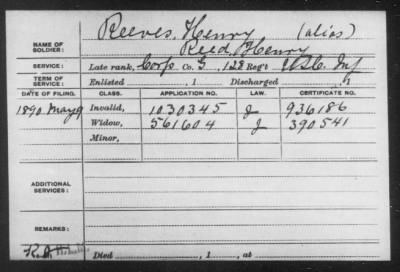 Reeves, Henry (alias)
NAME OF SOLDIER: Reed, Henry
SERVICE: Late rank, Corp Co. G, 128 Reg't U.S.C. Inf
TERM OF SERVICE: Enlisted , 1 Discharged , 1
DATE OF FILING. CLASS. APPLICATION NO. LAW. CERTIFICATE NO.
1890 May 9 Invalid, 1030345 J 936186
Widow, 561604 J 390541
Minor,
ADDITIONAL SERVICES:
REMARKS:
Died , 1 , at